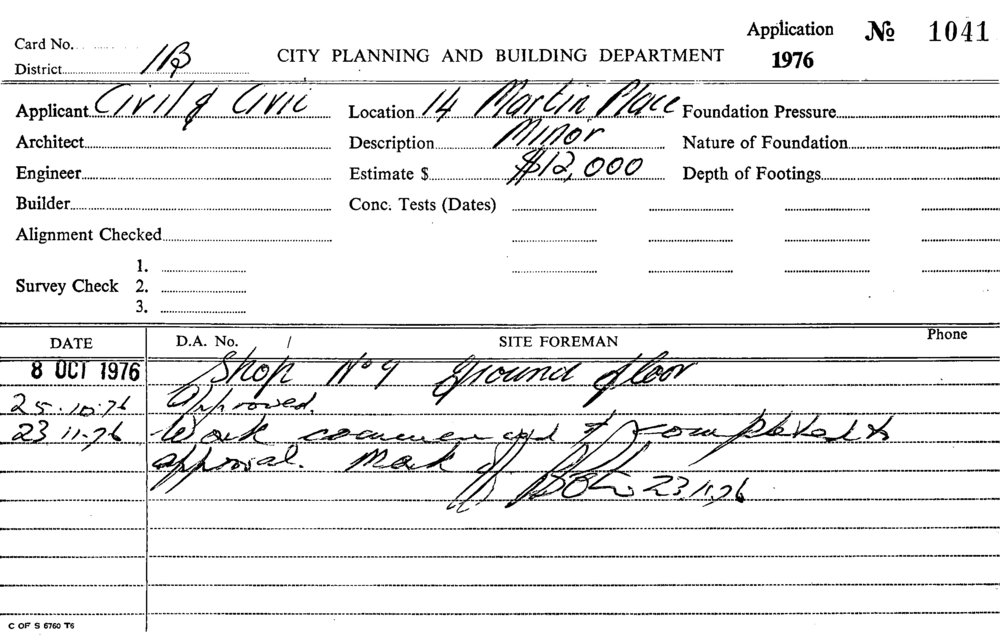 Application No 1041
1976
Card No.
District 1B
CITY PLANNING AND BUILDING DEPARTMENT
Applicant Civil & Civic Location 14 Martin Place Foundation Pressure
Architect Description Minor Nature of Foundation
Engineer Estimate $ $12,000 Depth of Footings
Builder Conc. Tests (Dates)
Alignment Checked
1.
Survey Check 2.
3.
DATE D.A. No. SITE FOREMAN Phone
8 OCT 1976 Shop No 9 Ground floor
25.10.76 Approved.
23 11.76 Work commenced & completed to
approval. Mark off 23.11.76
C OF S 6760 T6